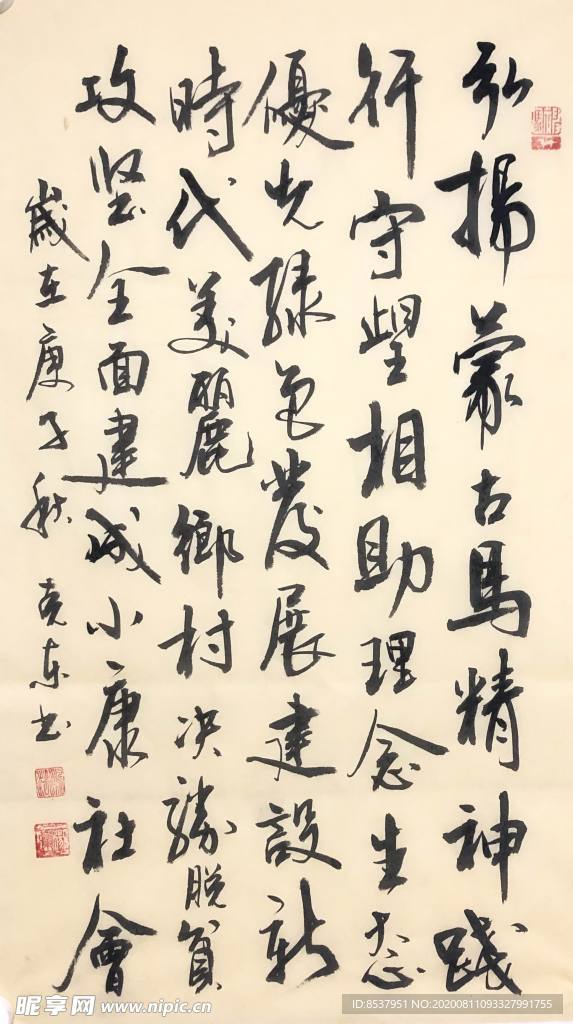 弘揚蒙古馬精神踐
行守望相助理念生态
優先綠色發展建設新
時代美麗鄉村决勝脱貧
攻坚全面建成小康社會
歲在庚子秋 克東书
昵享网 www.nipic.cn
ID:8537951 NO:20200811093327991755